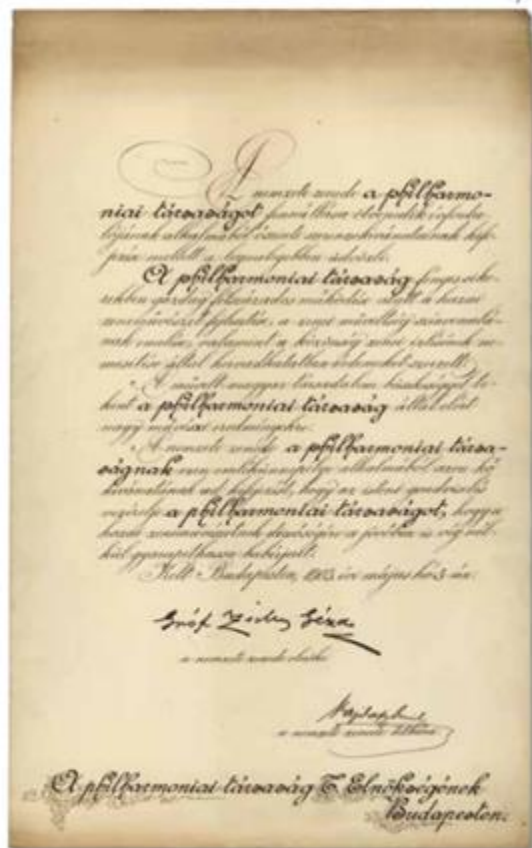 A nemzeti zenede a philharmo-
niai társaságot fennállása ötvenedik évfordu-
lójának alkalmából őszinte szerencsekivánatainak kife-
jezése mellett a legmelegebben üdvözli.
A philharmoniai társaság fényes sike-
rekben gazdag félszázados működése alatt a hazai
zeneművészet fejlesztése, a zenei műveltség
emelése, valamint a közönség zenei ízlésének ne-
mesitése által hervadhatatlan érdemeket szerzett.
A művelt magyar társadalom büszkeséggel te-
kint a philharmoniai társaság által elért
nagy művészi eredményekre.
A nemzeti zenede a philharmoniai társa-
ságnak ezen emlékünnepélye alkalmából azon
kivánatának ad kifejezést, hogy az isteni gondviselés
vezérelje a philharmoniai társaságot, hogy a
hazai zeneművészetnek dicsőségére a jövőben is
Kelt Budapesten, 1903 évi május hó 3-án.
Gróf Zichy Géza
a nemzeti zenede elnöke
a nemzeti zenede titkára
A philharmoniai társaság T. Elnökségének
Budapesten.